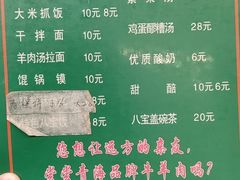 大米抓饭 10元 8元
干拌面 10元
羊肉汤拉面 10元
馄锅馍 10元
鸡蛋醪糟汤 28元
优质酸奶 6元
甜醅 10元 6元
八宝盖碗茶 20元
您想让远方的亲友，
尝尝青海品牌牛羊肉吗？